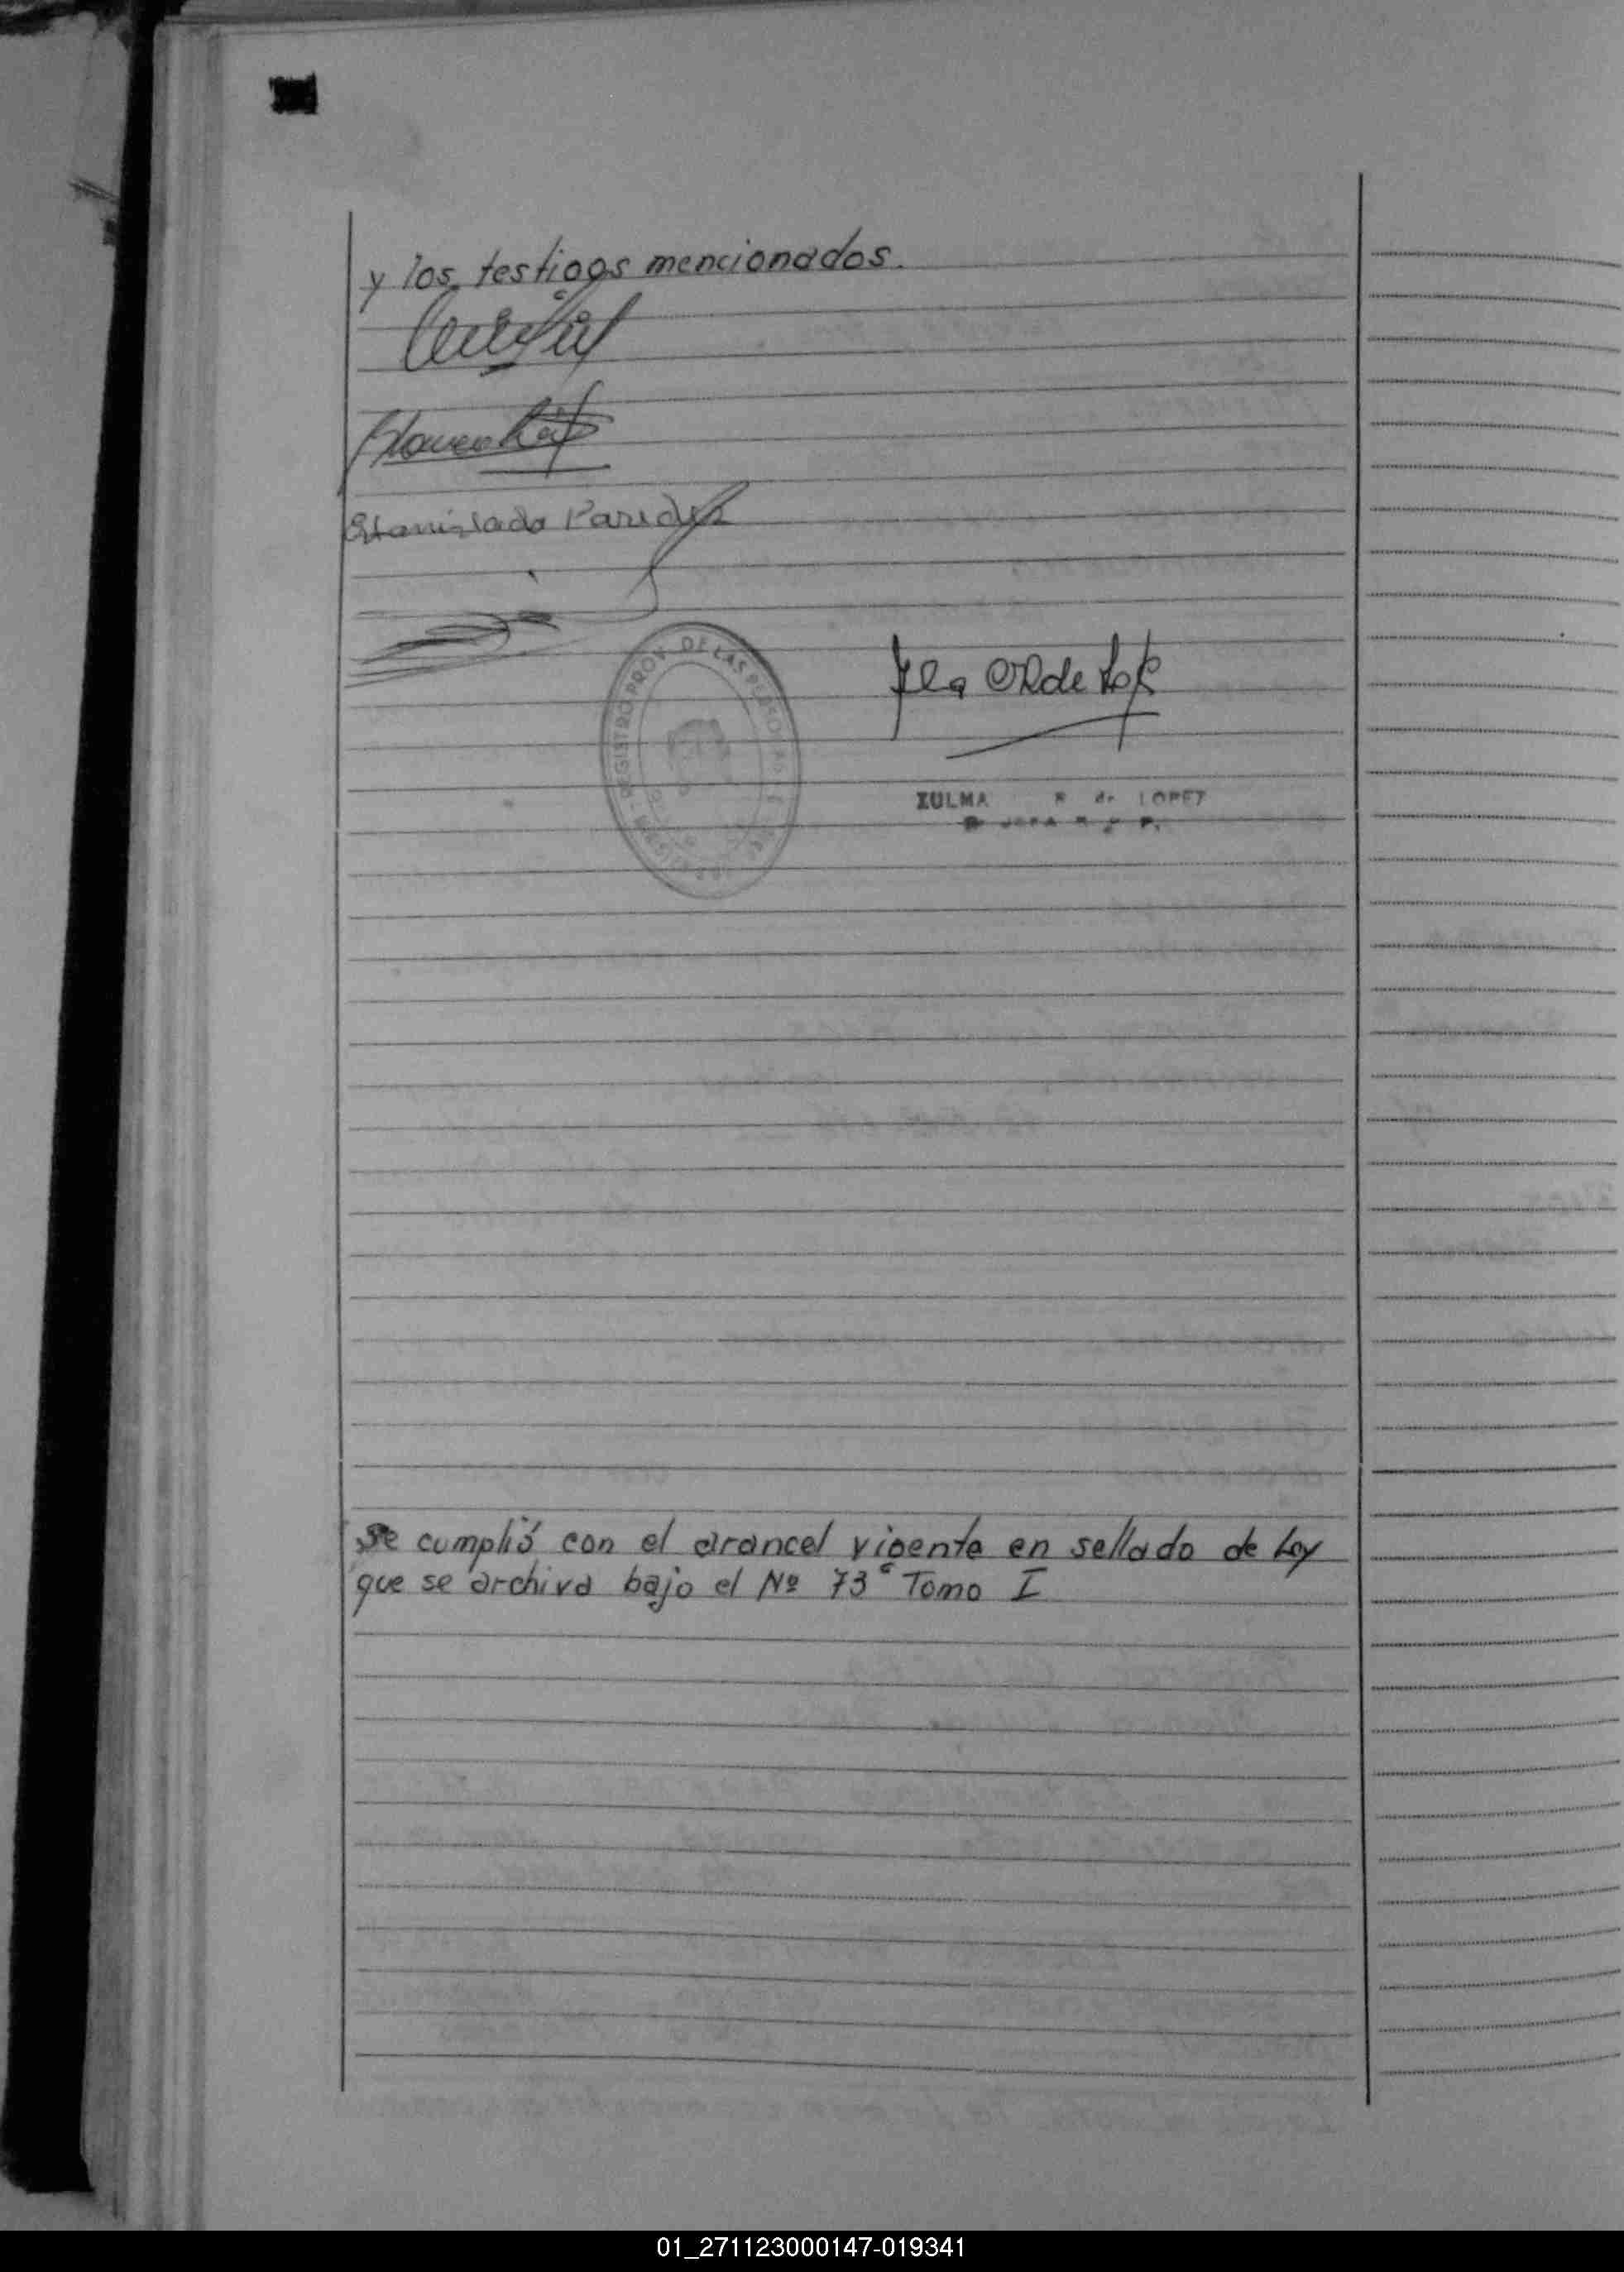 y los testigos mencionados.
Estanislada Paredes
REGISTRO PROV. DE LAS PERSONAS
ZULMA R de LOPEZ
JEFA R P.
Se cumplió con el arancel vigente en sellado de Ley
que se archiva bajo el Nº 73 Tomo I
01_271123000147-019341